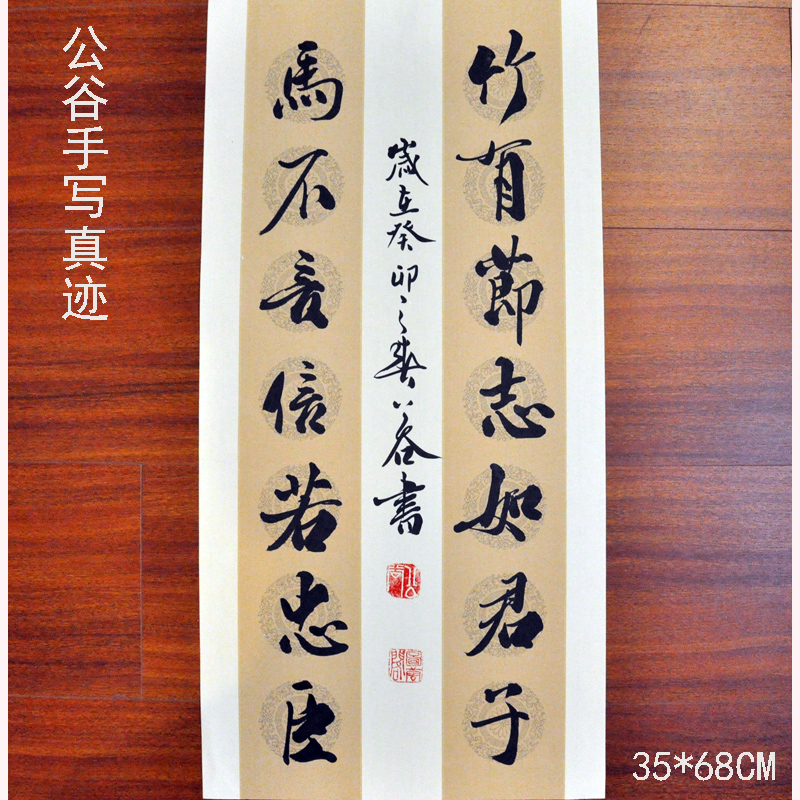 公谷手写真迹
竹有節志如君子
歲在癸卯之春公谷書
馬不言信若忠臣
35*68CM